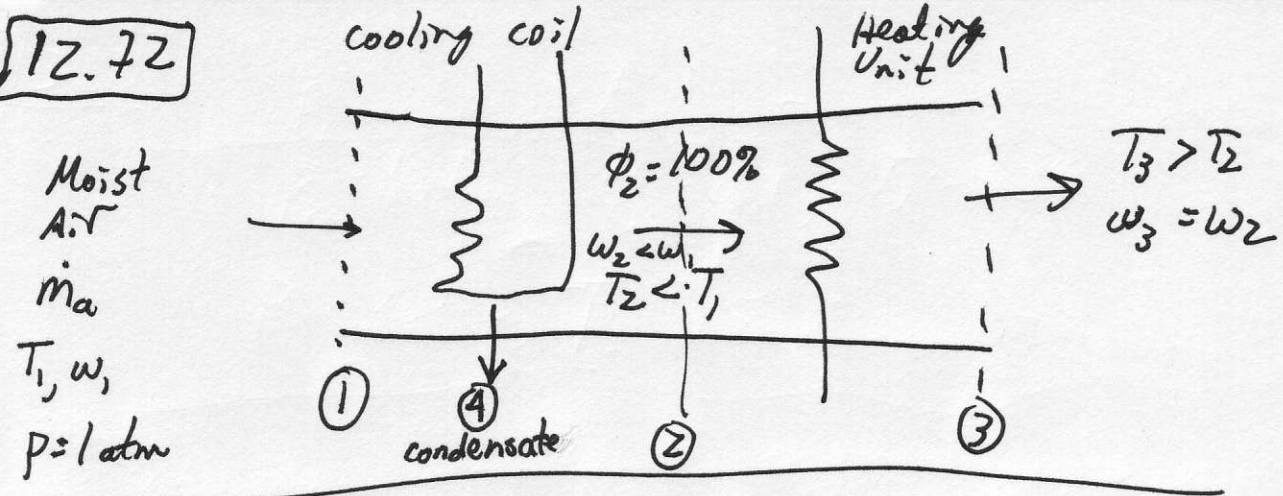 12.72
cooling coil
Heating
Unit
Moist
Air
ṁa
T1, ω1
P=1 atm
ϕ2=100%
ω2<ω1
T2<T1
T3>T2
ω3=ω2
①
④
condensate
②
③